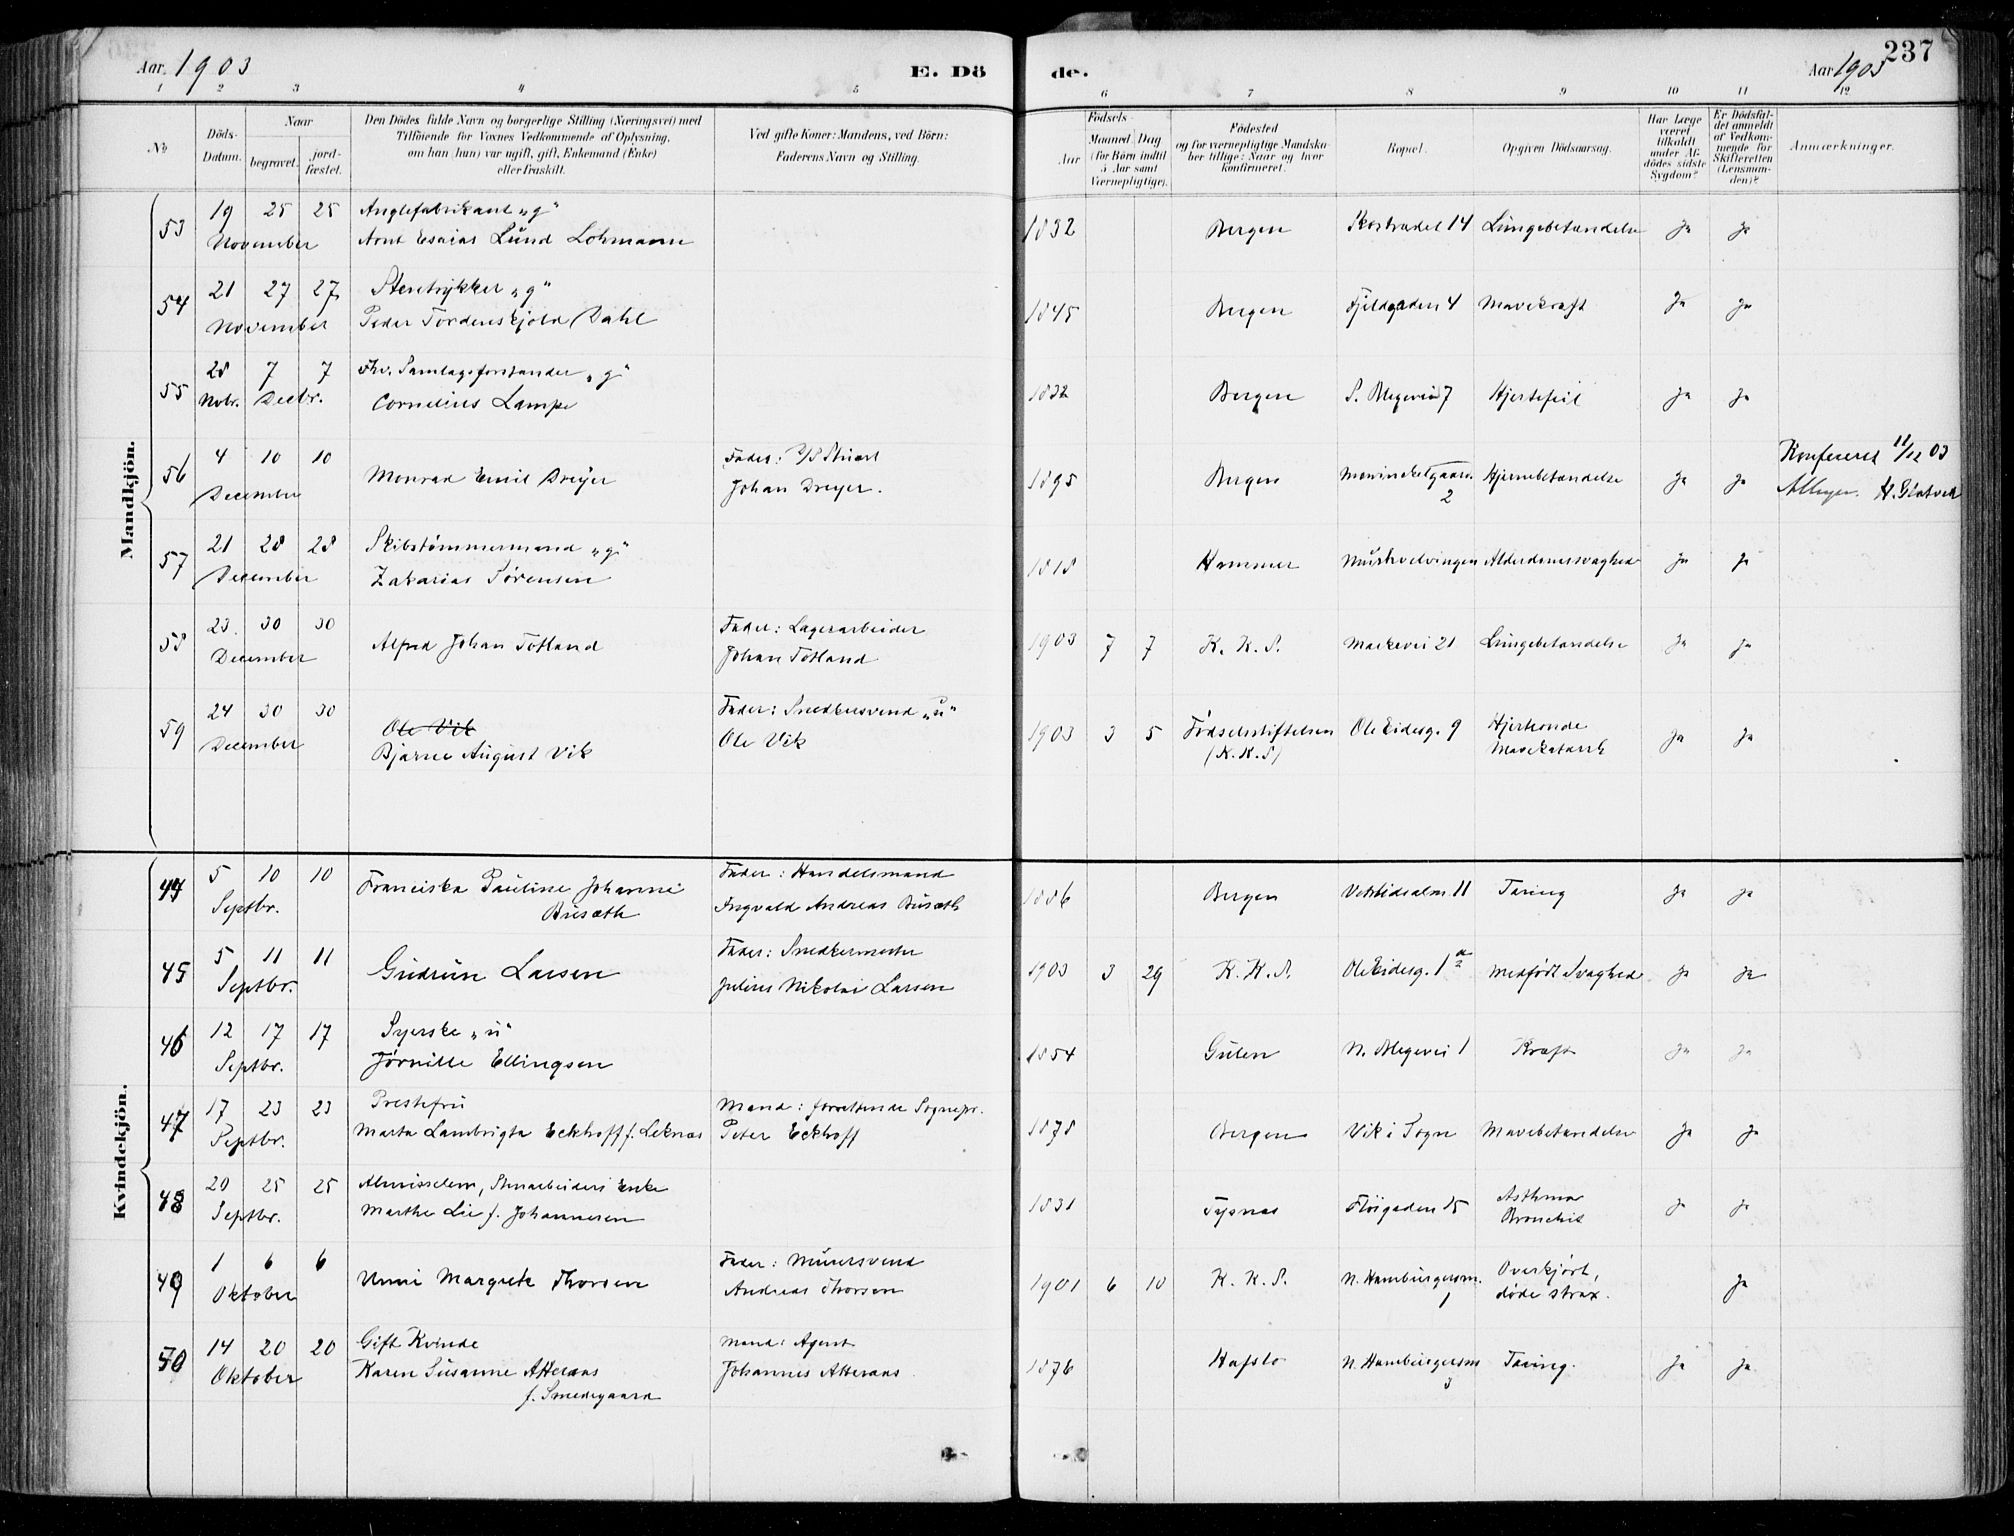 Aar. 1903
E. Dö
de.
Aar 1903
237
1 2 3 4 5 6 7 8 9 10 11 12
No
Döds-Datum.
Naar
begravet.
jord-fæstet.
Den Dödes fulde Navn og borgerlige Stilling (Næringsvei) med
Tilföiende for Voxnes Vedkommende af Oplysning,
om han (hun) var ugift, gift, Enkemand (Enke)
eller fraskilt.
Ved gifte Koner: Mandens, ved Börn:
Faderens Navn og Stilling.
Födsels-
Aar
Maaned Dag
(for Börn indtil
5 Aar samt
Værnepligtige).
Födested
og for værnepligtige Mandska-
ber tillige: Naar og hvor
konfirmeret.
Bopæl.
Opgiven Dödsaarsag.
Har Læge
været
tilkaldt
under Af-
dödes sidste
Sygdom?
Er Dödsfal-
det anmeldt
af Vedkom-
mende for
Skifteretten
(Lensman-
den)?
Anmærkninger.
Mandkjön.
53 19 25 25 Anglefabrikant „g“ 1832 Bergen 14 Lungebetændelse Ja Ja
November Arnt Esaias Lund Lohmann
54 21 27 27 „g“ 1845 Bergen Fjeldgaden 4 Mavekræft Ja Ja
November Peder Tordenskjold Dahl
55 28 7 7 Fhv. Samlagsforstander „g“ 1832 Bergen 7 Hjertefeil Ja Ja
Novbr. Decbr. Cornelius Lampe
56 4 10 10 Monrad Emil Dreyer Fader: D/S Stuert 1895 Bergen 2 Hjernebetændelse Ja Ja Konfereret 11/12 03
December Johan Dreyer.
57 21 28 28 Skibstømmermand „g“ 1818 Hammer Murhvelvingen Alderdomssvaghed Ja Ja
December Zakarias Sørensen
58 23. 30 30 Alfred Johan Totland Fader: Lagerarbeider 1903 7 7 K. K. S. Markevei 21 Lungebetændelse Ja Ja
December Johan Totland
59 24 30 30 Ole Vik Fader: Snedkersvend „u“ 1903 3 5 Fødselsstiftelsen Ole Eidesg. 9 Hjerteonde Ja Ja
December Bjarne August Vik Ole Vik (K.K.S) Mavekatarrh
Kvindekjön.
44 5 10 10 Franciska Pauline Johanne Fader: Handelsmand 1886 Bergen Vetrlidsalm. 11 Tæring Ja Ja
Septbr. Busæth Ingvald Andreas Busæth
45 5 11 11 Gudrun Larsen Fader: Snedkermester 1903 3 29 K. K. S. Ole Eidesg. 1 a/2 Medfødt Svaghed Ja Ja
Septbr. Julius Nikolai Larsen
46 12 17 17 Syerske „u“ 1854 Gulen N. Blegevei 1 Kræft Ja Ja
Septbr. Jørnille Ellingsen
47 17 23 23 Prestefru Mand: forrettende Sognepr. 1878 Bergen Vik i Sogn Mavebetændelse Ja Ja
Septbr. Marta Lambrigta Eckhoff f. Leknæs Peter Eckhoff
48 20 25 25 Almisselem, Enke 1831 Tysnæs Fløigaden 15 Asthma Ja Ja
Septbr. Marthe Lie f. Johannesen Bronchit
49 1 6 6 Unni Margrete Thorsen Fader: Murersvend 1901 6 10 K. K. S. N. Hamburgersm. 1 Overkjørt, Ja
Oktober Andreas Thorsen døde strax.
50 14 20 20 Gift Kvinde Mand: Agent 1876 Hafslo N. Hamburgersm 3 Tæring. Ja Ja
Oktober Karen Susanne Atteraas Johannes Atteraas
f. Smedegaard